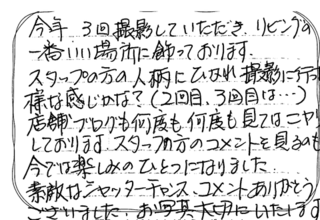 今年 3回撮影していただき、リビングの
一番いい場所に飾っております。
スタッフの方の人柄にひかれ撮影に行った
様な感じかな?(2回目、3回目は…)
店舗ブログも何度も何度も見てはニヤリ
しております。スタッフの方のコメントを見るのも
今では楽しみのひとつになりました。
素敵なシャッターチャンス、コメントありがとう
ございました。お写真大切にいたします